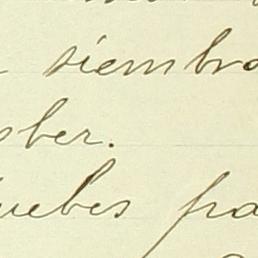 siembra
sber.
uebes fra